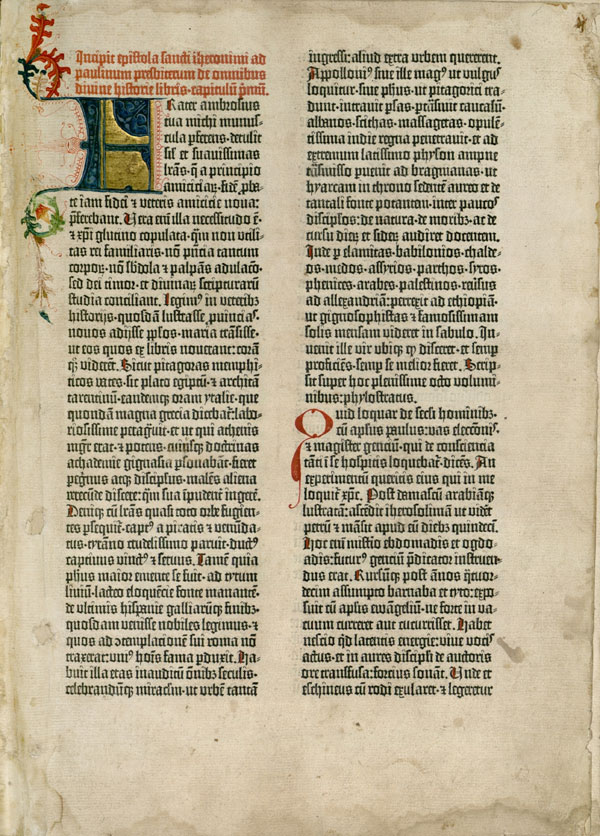 Incipit epistola sancti iheronimi ad
paulinum presbiterum de omnibus
divine historie libris · capitulū p̄mū.
Frater ambrosius
tua michi munus-
cula p̄ferens · detulit
sil̄ et suavissimas
lr̄as · q̄ a principio
amiciciaꝝ · fidē p̄ba-
te iam fidei ⁊ veteris amicicie nova:
p̄ferebant. Uera eni̅ illa necessitudo ē ·
⁊ xp̄i glutino copulata · qm̄ non utili-
tas rei familiaris · nō p̄ntia tantum
corporꝝ · nō sb̄dola ⁊ palpās adulacō ·
sed dei timor · et divinaꝝ scripturarū
studia conciliant. Legimꝰ in veteribꝫ
historijs · quosdā lustrasse ꝓuincias ·
novos adijsse ppl̄os · maria trāsisse ·
ut eos quos ex libris noverant: corā
qꝫ viderēt. Sicut pitagoras memphi-
ticos vates · sic plato egiptū · ⁊ architā
tarentinū · eandemqꝫ oram ytalie · que
quondā magna grecia dicebat᷑: labo-
riosissime peragravit · et ut qui athenis
mgr̄ erat · ⁊ potens · cuiusqꝫ doctrinas
achademie gignasia ꝑsonabāt · fieret
peregrinꝰ atqꝫ discipulus · malēs aliena
verecūde discere: qm̄ sua īpudent̄ ingerē.
Deniqꝫ cū lr̄as quasi toto orbe fugien-
tes ꝑsequit᷑ · captꝰ a piratis ⁊ venūda-
tus · tyrāno crudelissimo paruit · ductꝰ
captivus vinctꝰ ⁊ servus. Tamē quia
phūs maior emente se fuit · ad tytum
liviū · lacteo eloquēcie fonte manantē ·
de ultimis hispanie galliarūqꝫ finibꝫ ·
quosdam venisse nobiles legimus · ⁊
quos ad ꝯtemplationē sui roma nō
traxerat: uniꝰ hoīs fama ꝑduxit. Ha-
buit illa etas inauditū oīnibꝫ seculis ·
celebrandūqꝫ miraculū · ut urbē tantā
ingressi: aliud extra urbem quererent.
Appolloniꝰ sive ille magꝰ ut vulgꝰ
loquitur · sive phūs · ut pitagorici tra-
dunt · intravit ꝑsas · ꝑtrāsivit caucasū ·
albanos · scithas · massagetas · opulē-
tissima indie regna penetravit · et ad
extremum latissimo physon ampne
trāsmisso ꝑvenit ad bragmanas · ut
hyarcam in throno sedentē aureo et de
tantali fonte potantem · inter paucos
discipl̄os: de natura · de moribꝫ · ac de
cursu dierꝫ et siderꝫ audiret docentem.
Inde ꝑ elamitas · babilonios · chalde-
os · medos · assyrios · parthos · syros ·
phenices · arabes · palestinos · reūsus
ad allexandriā: perrexit ad ethiopiā ·
ut gignosophistas ⁊ famosissimam
solis mensam videret in sabulo. In-
venit ille vir ubiqꝫ qd̄ disceret · et semꝑ
proficiēs · semꝑ se melior fieret. Scrip-
sit super hoc plenissime octo volumi-
nibus: phylostratus.
Quid loquar de secl̄i hominibꝫ ·
cū apl̄us paulus: vas electōnis ·
⁊ magister genciū · qui de consciencia
tāti ī se hospitis loquebat᷑ · dicēs. An
experimentū queritis eius qui in me
loquit᷑ xp̄c. Post damascū arabiāqꝫ
lustratā: ascēdit iherosolimā ut vidēt
petrū ⁊ māsit apud eū diebꝫ quindecī.
Hoc eni̅ misterio ebdomadis et ogdo-
adis: futurꝰ genciū p̄dicator instruen-
dus erat. Rursūqꝫ post ānos q̄tuor-
decim assumpto barnaba et tyto: expo-
suit cū apl̄is ewāgeliū · ne forte in va-
cuum curreret aut cucurrisset. Habet
nescio qd̄ latentis energie: vive vocꝭ
actus · et in aures discipl̄i de auctoris
ore transfusa: forcius sonat. Unde et
eschineus cū rodi exularet · ⁊ legeretur